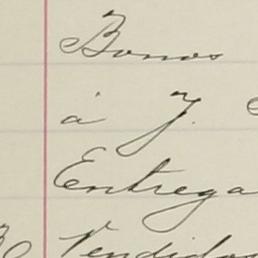 Bonos
á J.
Entrega
Vendidos